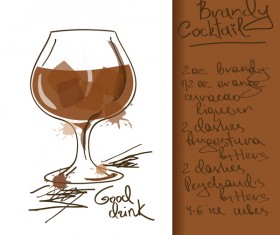 Brandy
Cocktail
2 oz brandy
1/2 oz orange
curacao
liqueur
2 dashes
Angostura
bitters
2 dashes
Peychaud's
bitters
4-6 ice cubes
Good
drink